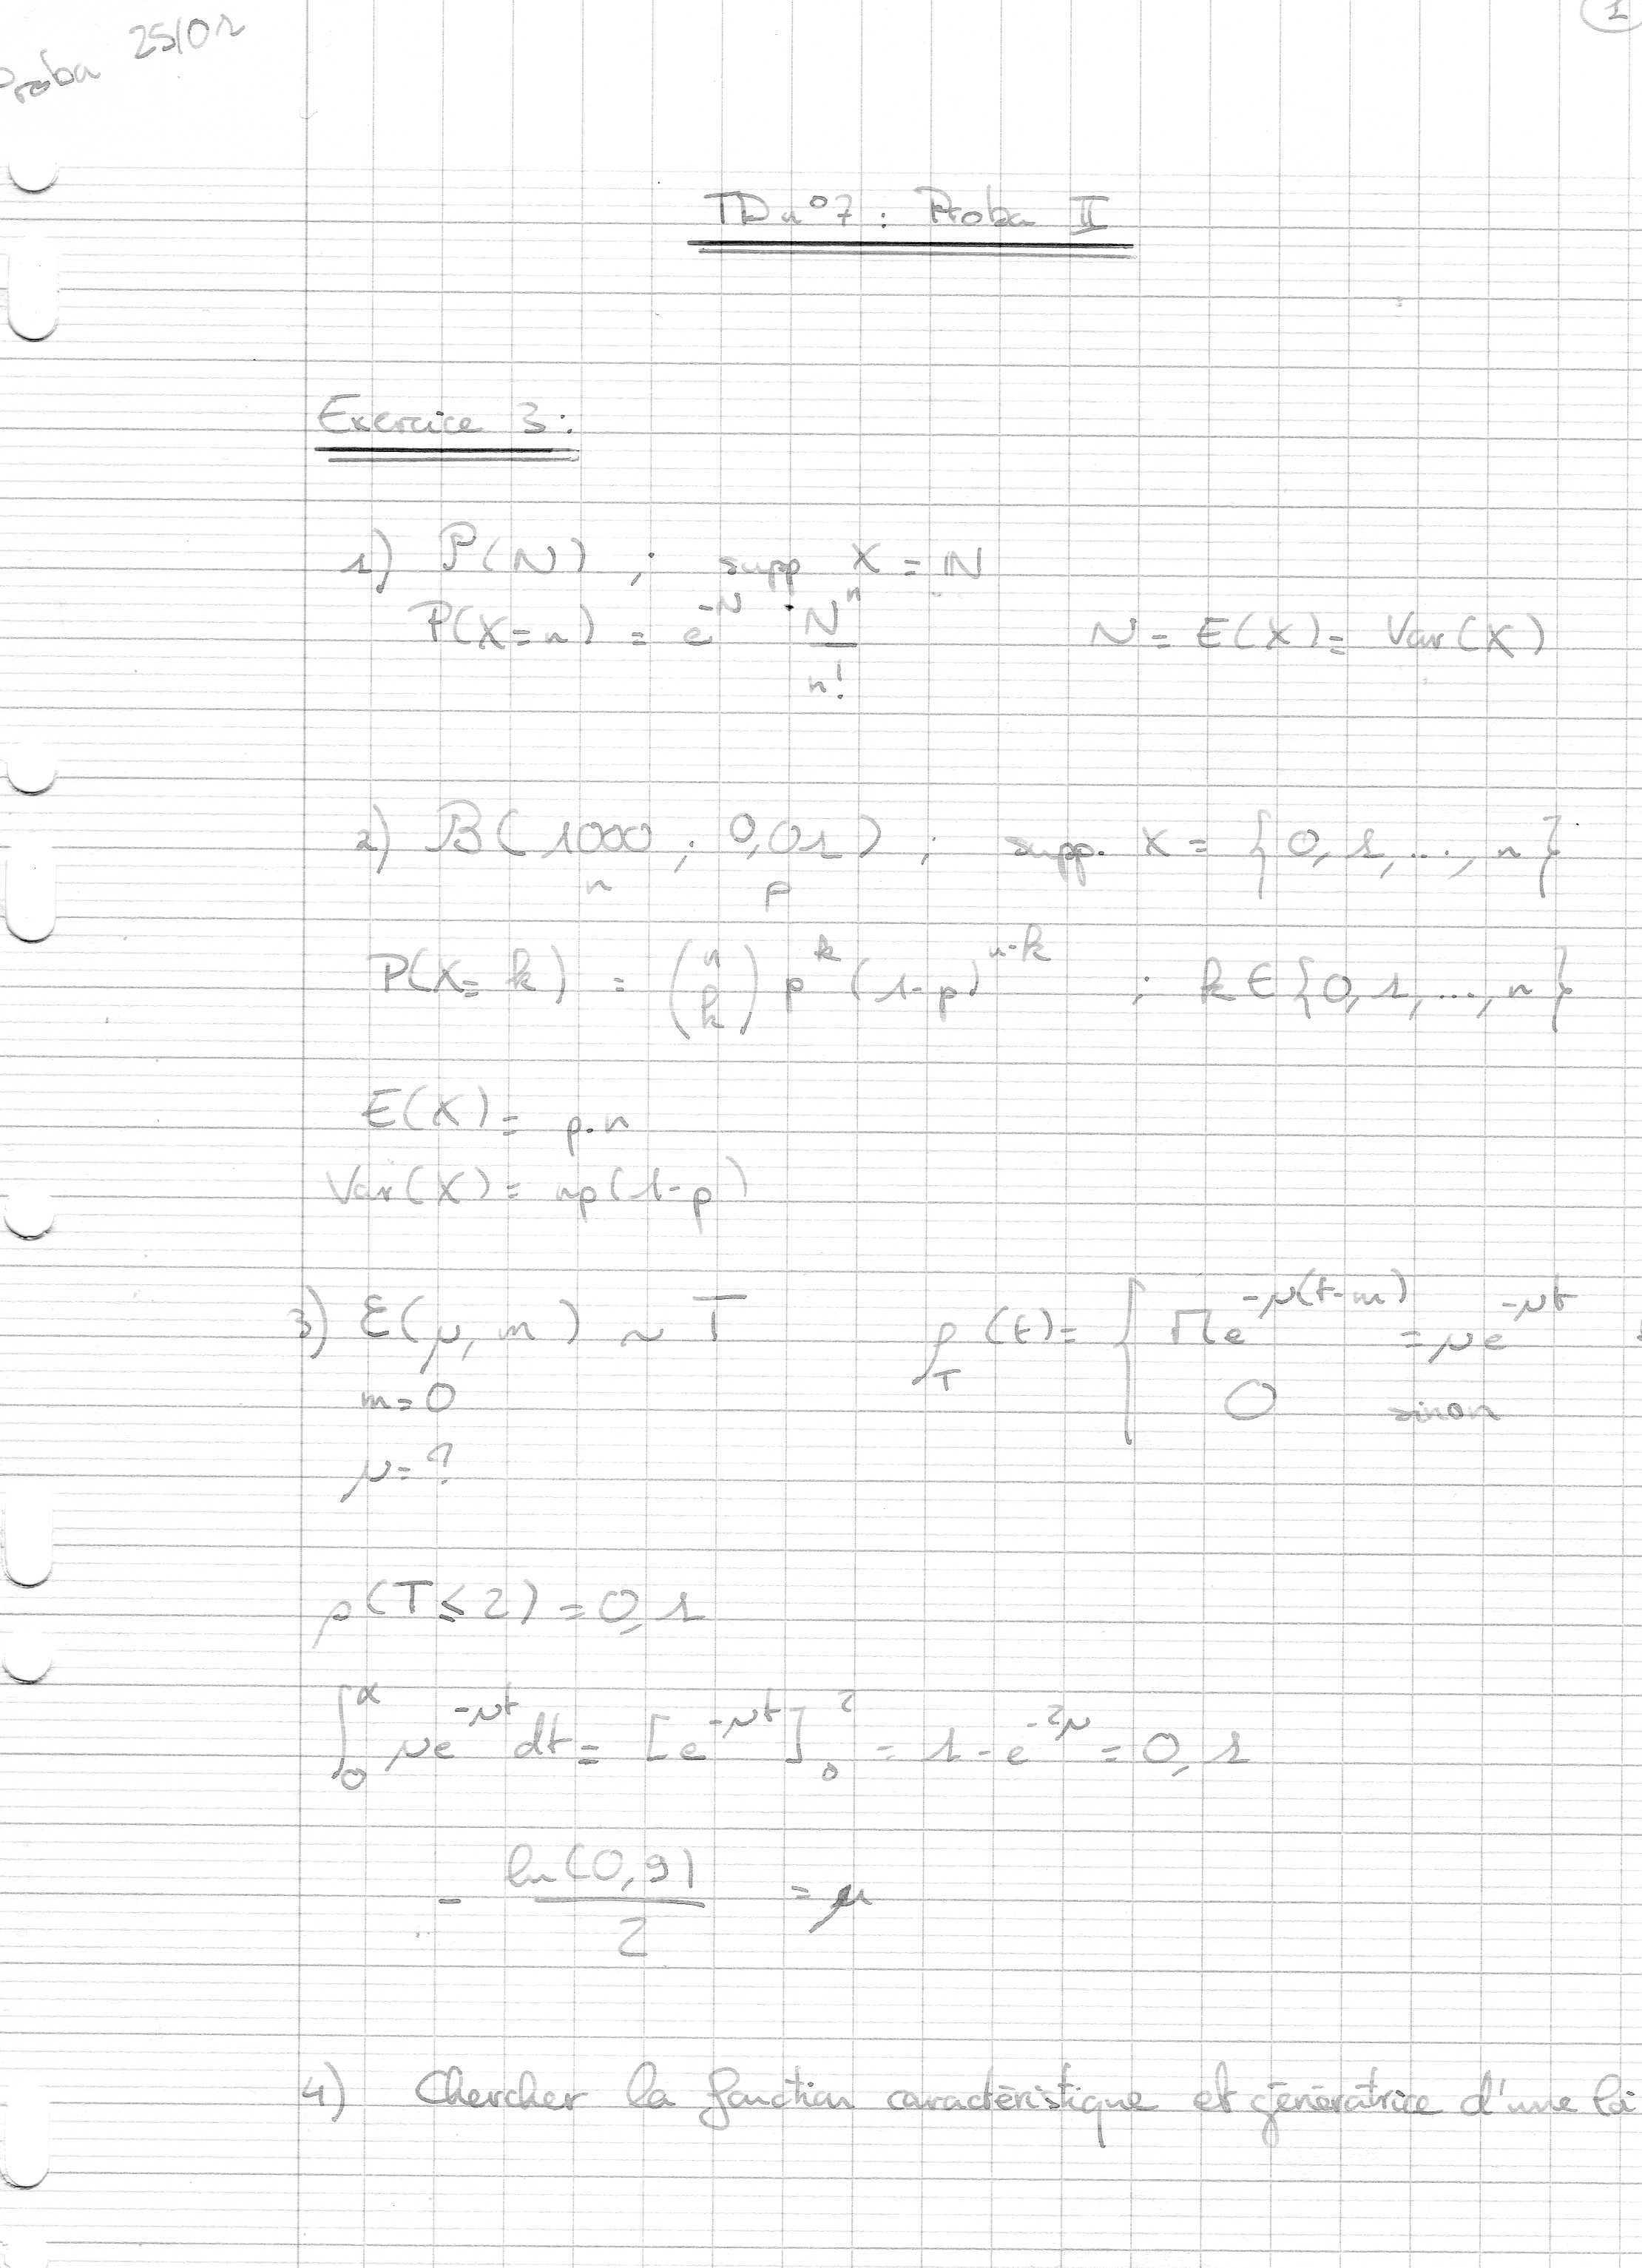 Proba 25/01
1
TD n°7 : Proba II
Exercice 3 :
1) P(N) ; supp X = ℕ
P(X=n) = e^{-N} · N^n / n!    N = E(X) = Var(X)
2) B(1000 ; 0,01) ; supp. X = {0, 1, ..., n}
n    p
P(X=k) = (n k) p^k (1-p)^{n-k} ; k ∈ {0, 1, ..., n}
E(X) = p.n
Var(X) = np(1-p)
3) ℰ(μ, m) ~ T    f_T(t) = { Πe^{-μ(t-m)} = μe^{-μt}
m = 0    0 sinon
μ = ?
p(T ≤ 2) = 0,1
∫_0^α μe^{-μt} dt = [e^{-μt}]_0^2 = 1 - e^{-2μ} = 0,1
- ln(0,9) / 2 = μ
4) Chercher la fonction caractéristique et génératrice d'une loi